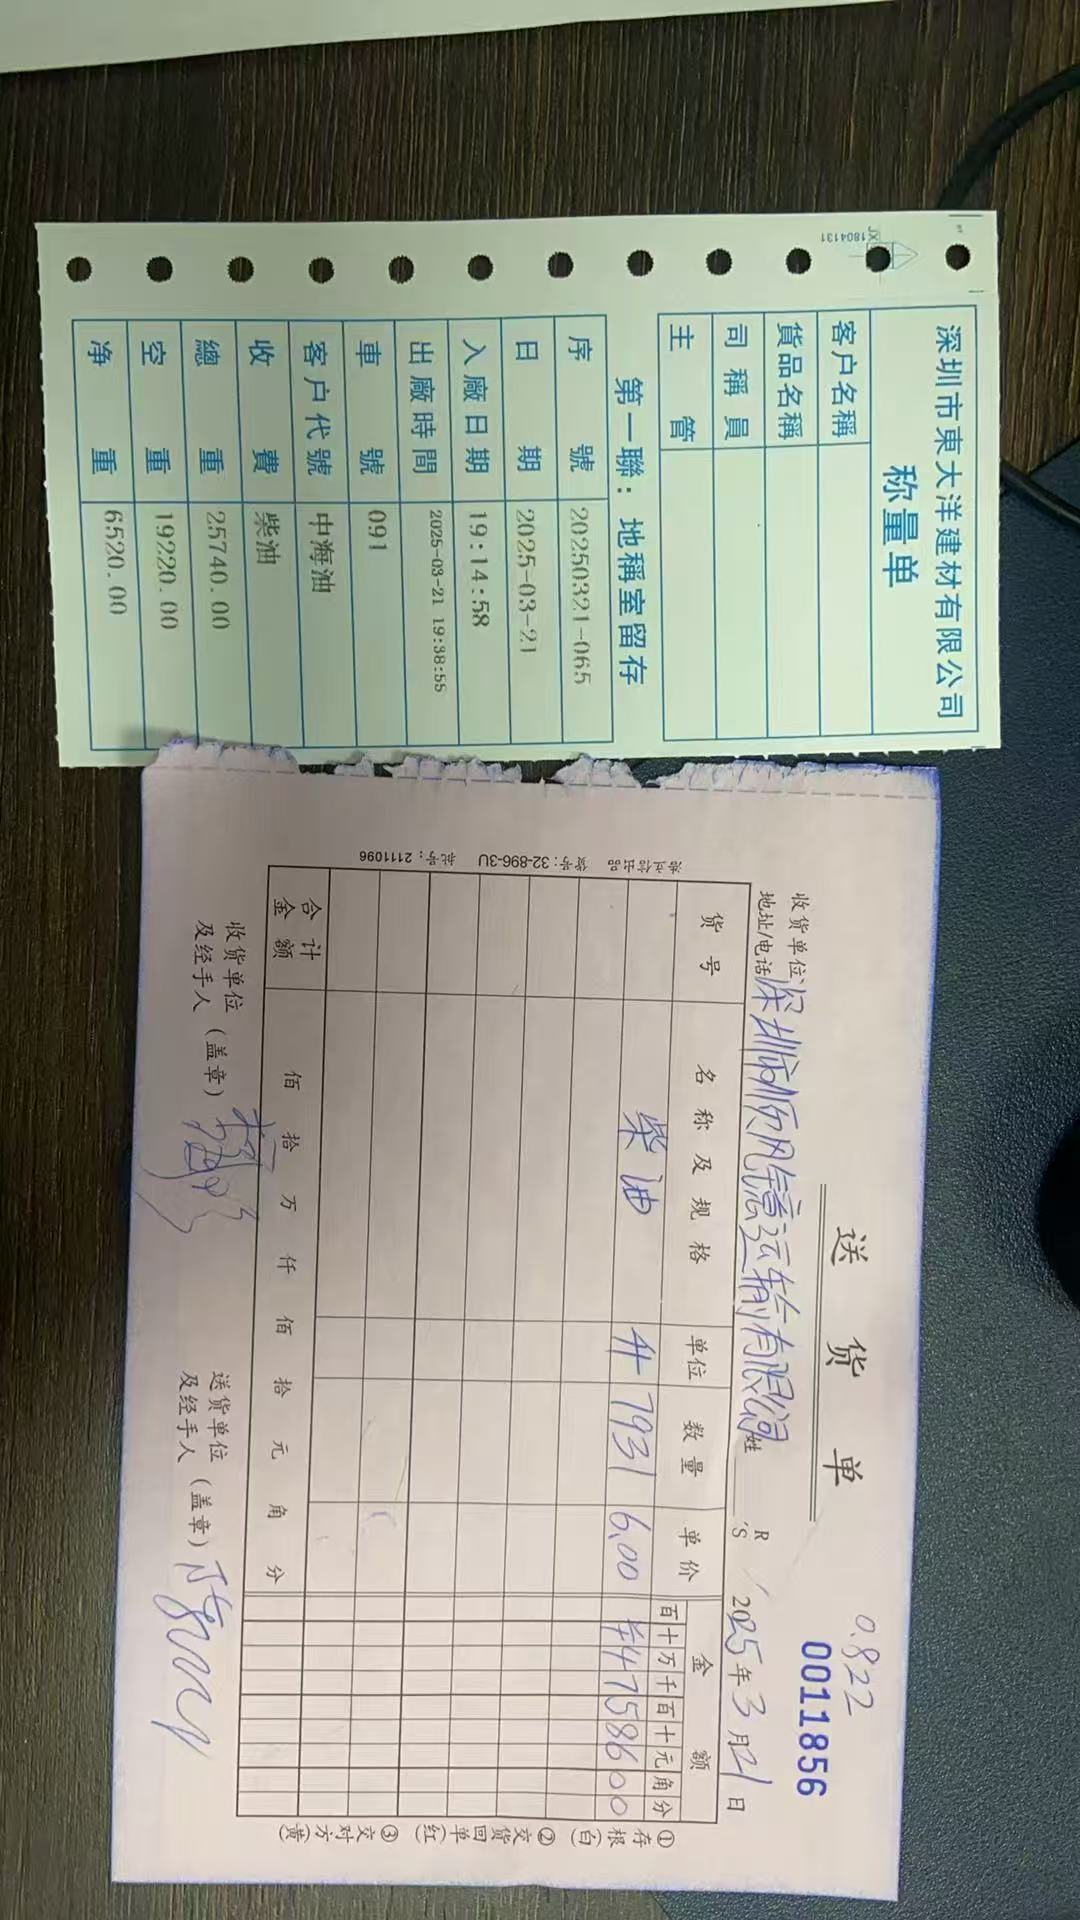 JX 1804131
深圳市東大洋建材有限公司
称量单
客户名稱
貨品名稱
司稱員
主管
第一聯：地稱室留存
序號 20250321-065
日期 2025-03-21
入廠日期 19:14:58
出廠時間 2025-03-21 19:38:55
車號 091
客户代號 中海油
收費 柴油
總重 25740.00
空重 19220.00
净重 6520.00
0.822
送货单 0011856
收货单位
地址/电话 深圳市顺风鑫运输有限公司 姓 R'S 2025年3月21日
货号 名称及规格 单位 数量 单价 金额
百十万千百十元角分
柴油 升 7931 6.00 ¥4758600
合计金额 佰 拾 万 仟 佰 拾 元 角 分
收货单位及经手人（盖章） 送货单位及经手人（盖章）
①存根（白） ②交货回单（红） ③交对方（黄）
货号：32-896-3U 批号：2111096